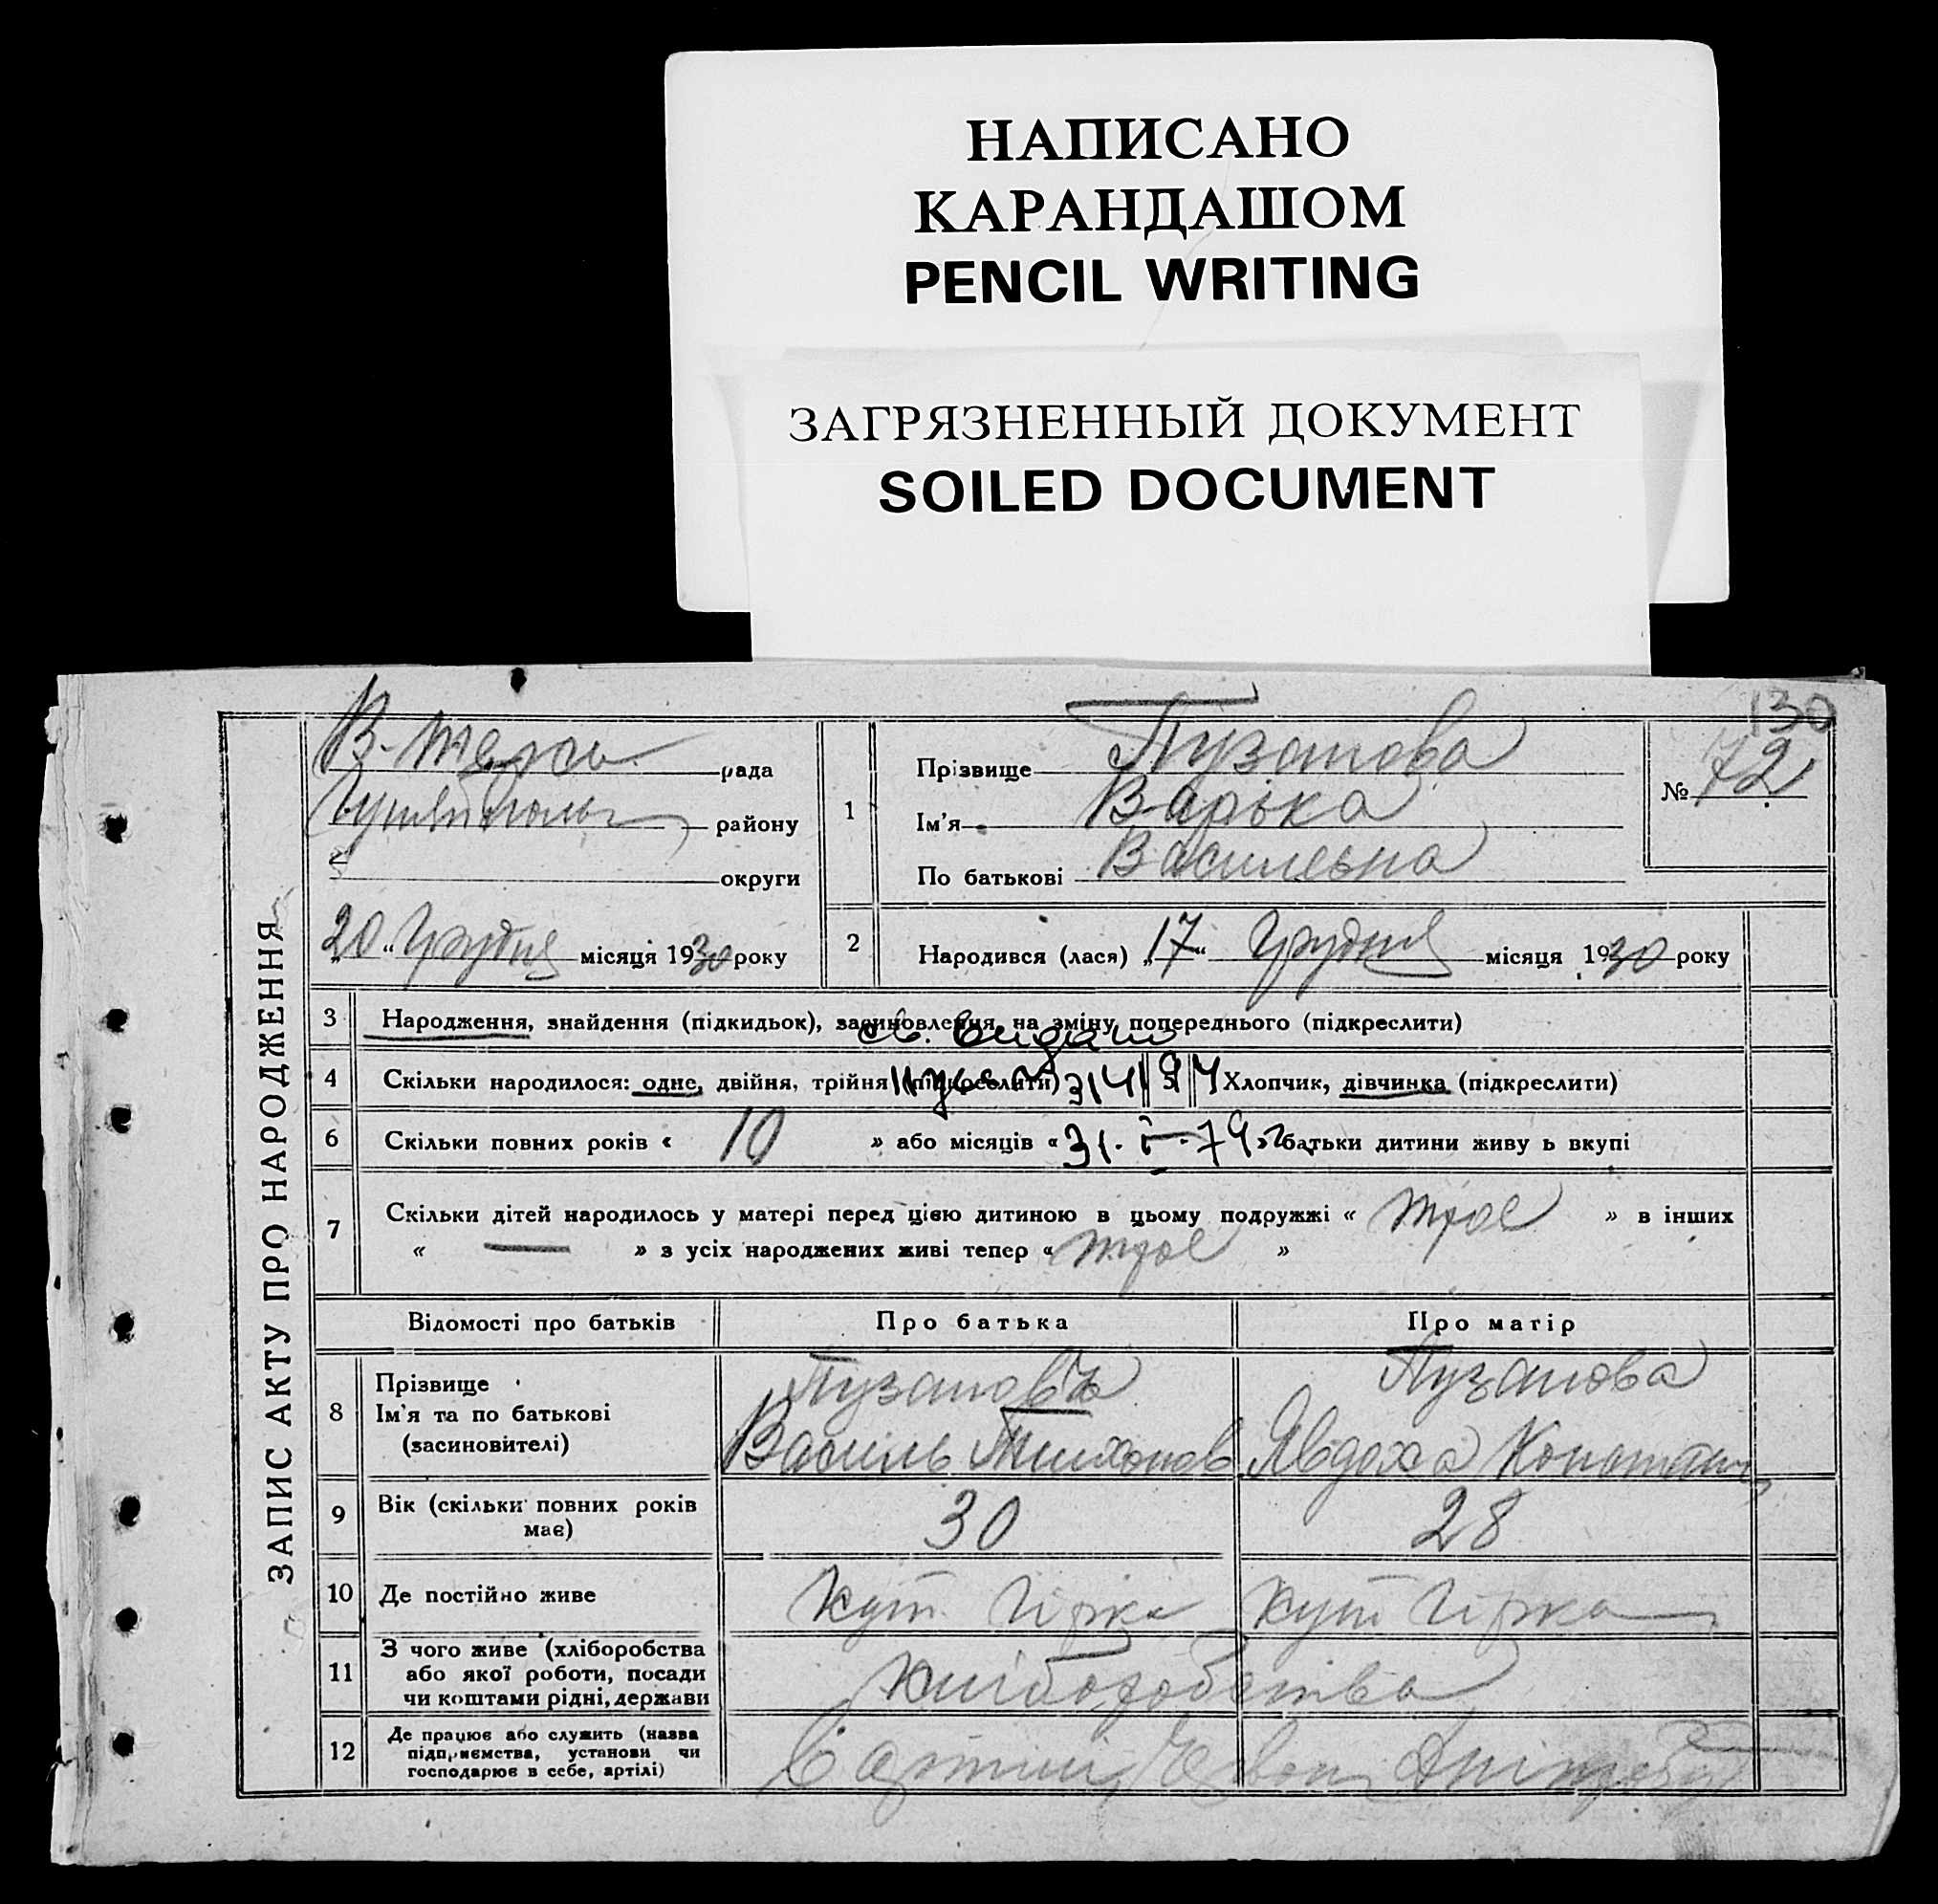 НАПИСАНО
КАРАНДАШОМ
PENCIL WRITING
ЗАГРЯЗНЕННЫЙ ДОКУМЕНТ
SOILED DOCUMENT
130
ЗАПИС АКТУ ПРО НАРОДЖЕННЯ
В-Терсь рада
району
округи
„20“ Грудня місяця 1930 року
1
Прізвище Пузанова
Ім'я Варька
По батькові Васильвна
№ 72
2 Народився (лася) „17“ Грудня місяця 1930 року
3 Народження, знайдення (підкидьок), засиновлення, на зміну попереднього (підкреслити)
св. видано
4 Скільки народилося: одне, двійня, трійня (підкреслити) 5 Хлопчик, дівчинка (підкреслити)
6 Скільки повних років « 10 » або місяців « » батьки дитини живуть вкупі
31. I-79
7 Скільки дітей народилось у матері перед цією дитиною в цьому подружжі « трое » в інших
« — » з усіх народжених живі тепер « трое »
Відомості про батьків Про батька Про матір
8 Прізвище
Ім'я та по батькові
(засиновителі)
Пузановъ
Василь Тихонов
Пузанова
Явдоха Констант
9 Вік (скільки повних років
має)
30 28
10 Де постійно живе Кут Гірка Кут Гірка
11 З чого живе (хліборобства
або якої роботи, посади
чи коштами рідні, держави
Хліборобства
12 Де працює або служить (назва
підприємства, установи чи
господарює в себе, артілі)